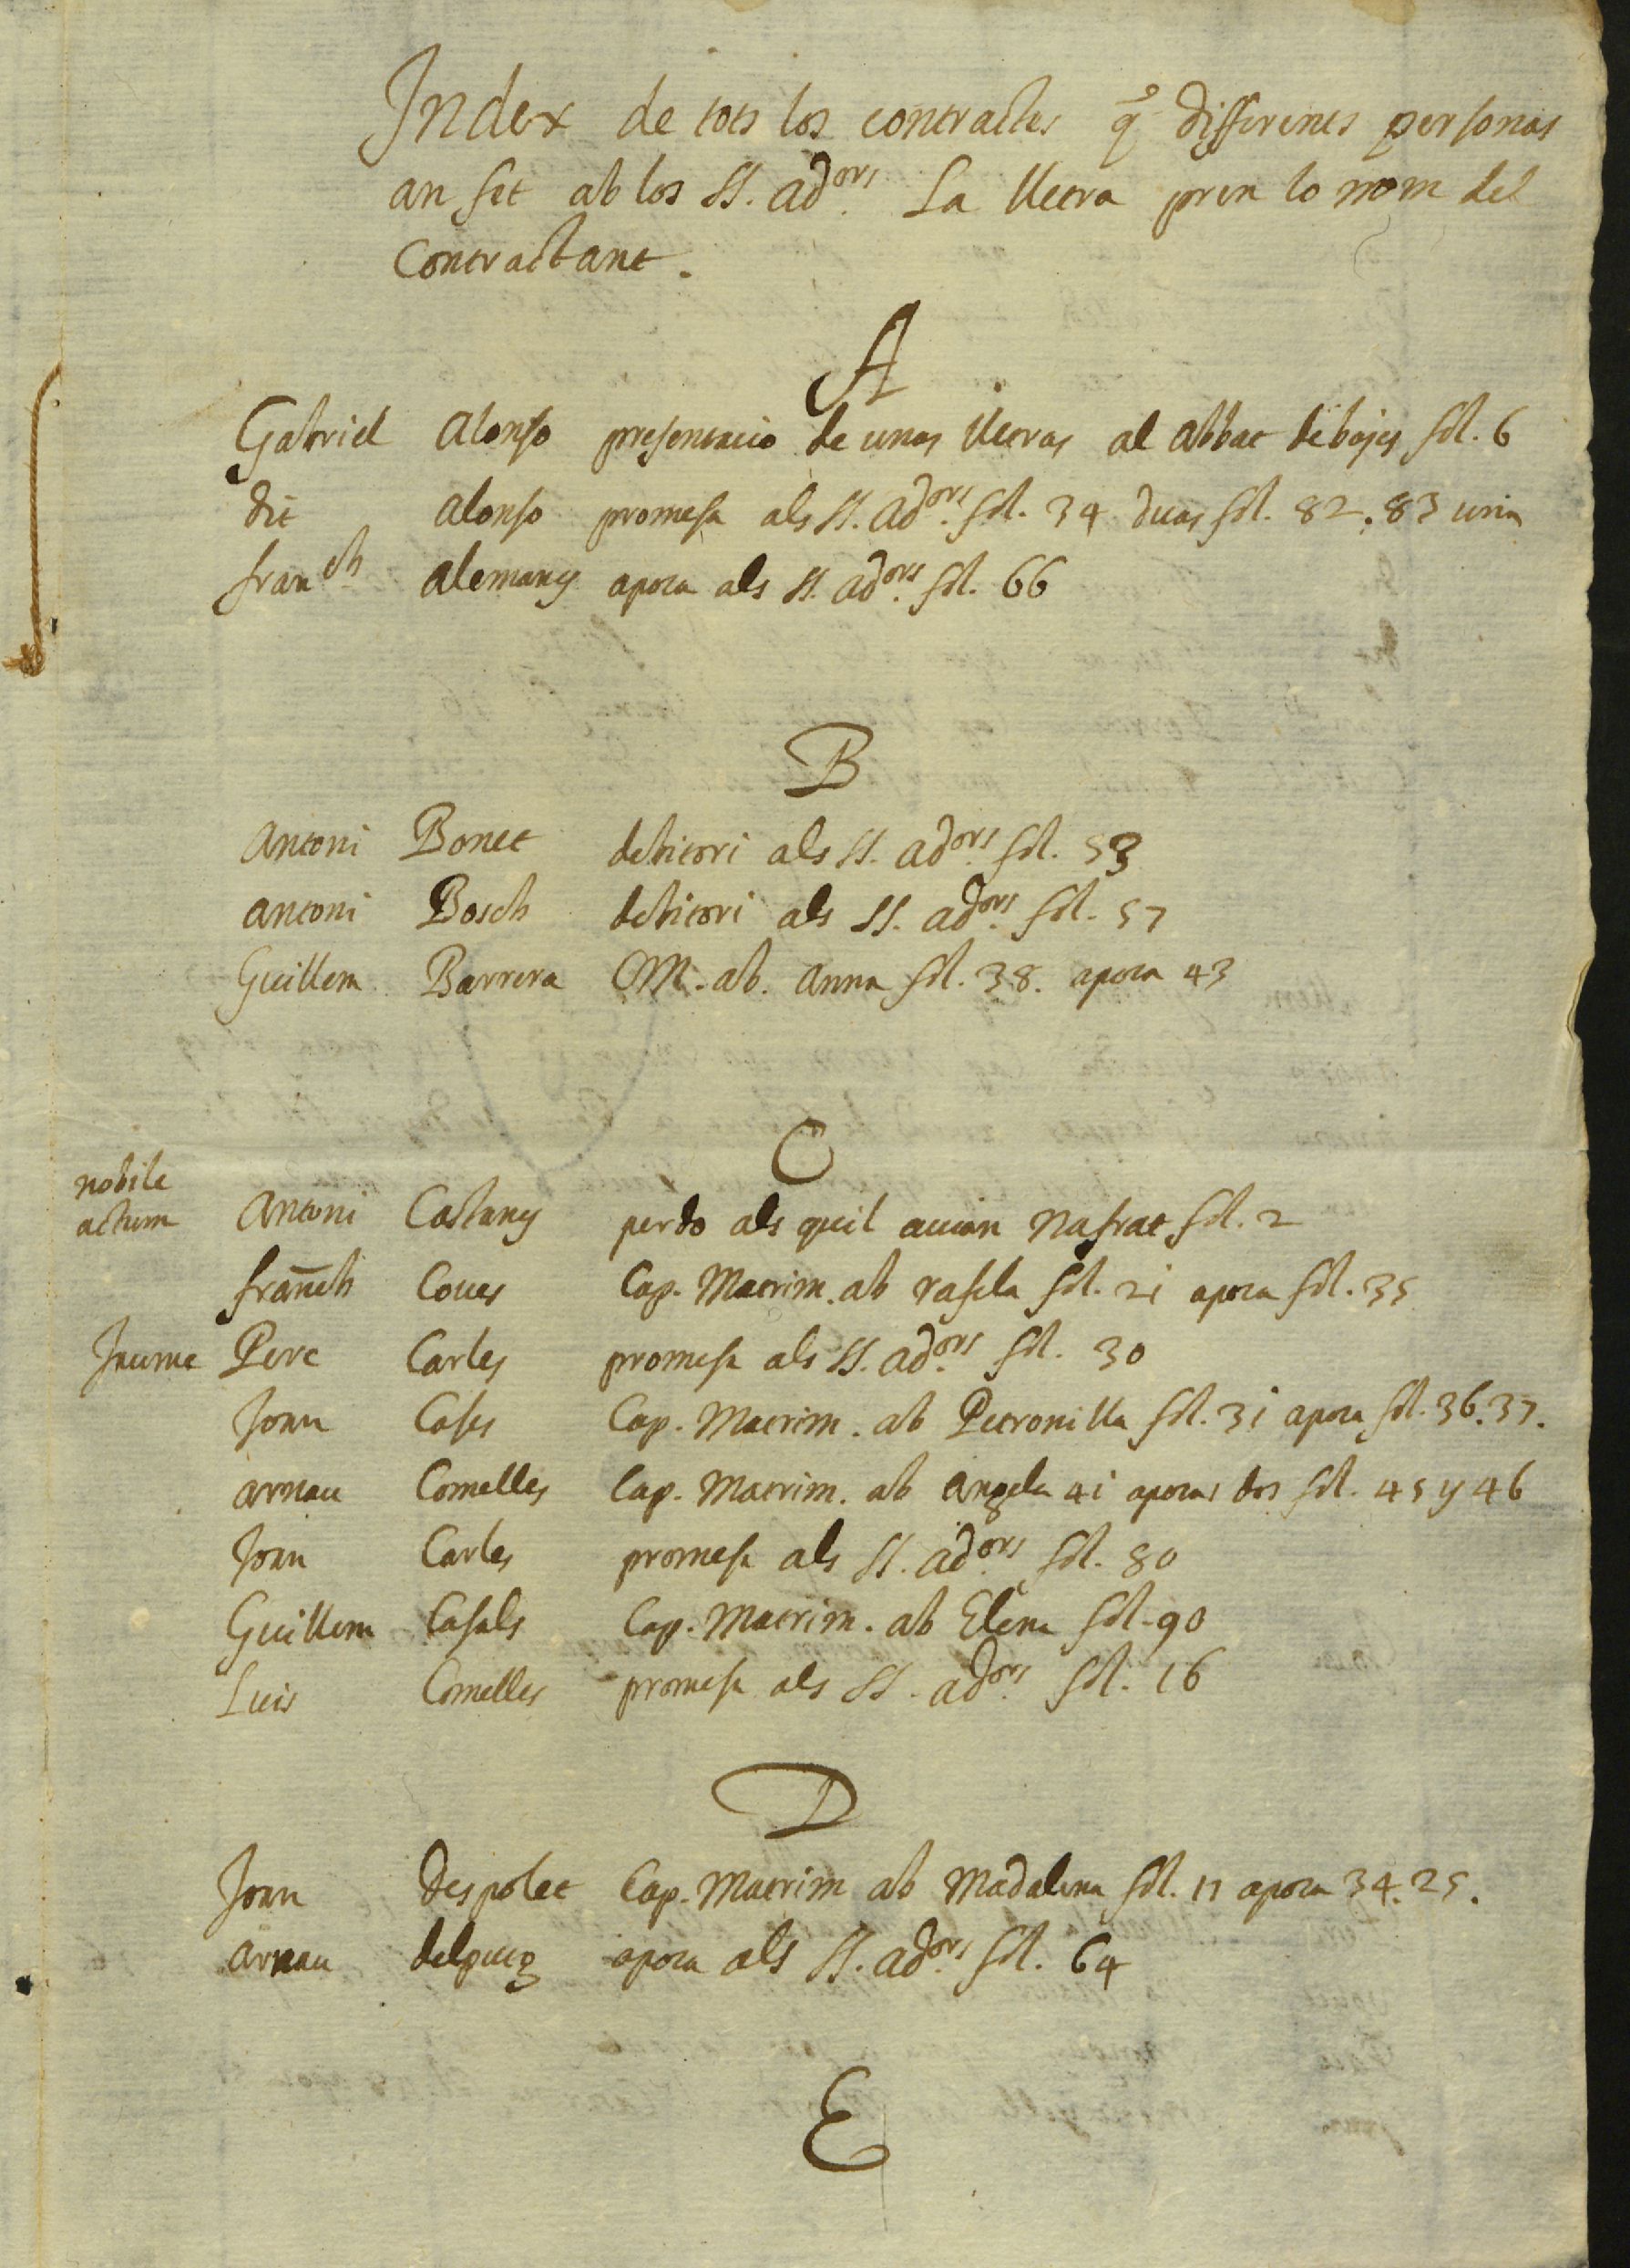 Index de tots los contractes q̃ differents personas
an fet ab los SS. ad.ors La lletra pren lo nom del
Contractant.
A
Gabriel Alonso presentacio de unas lletras al abbat de bages fol. 6
dit Alonso promesa als SS. ad.ors fol. 34 duas fol. 82. 83 una
fran.ch Alemany apoca als SS. ad.ors fol. 66
B
Antoni Bonet debitori als SS. ad.ors fol. 53
Antoni Bosch debitori als SS. ad.ors fol. 57
Guillem Barrera M. ab. Anna fol. 38. apoca 43
C
nobile
actum Antoni Castany perdo als quil avian nafrat fol. 2
frañch Coves Cap. Matrim. ab rafela fol. 21 apoca fol. 35
Jaume Pere Carles promesa als SS. ad.ors fol. 30
Joan Cases Cap. Matrim. ab Petronilla fol. 31 apoca fol. 36. 37.
Arnau Comelles Cap. Matrim. ab Angela 41 apocas dos fol. 45 y 46
Joan Carles promesa als SS. ad.ors fol. 80
Guillem Casals Cap. Matrim. ab Elena fol. 90
Luis Comelles promesa als SS. ad.ors fol. 16
D
Joan Despolet Cap. Matrim ab Madalena fol. 11 apoca 34. 25.
Arnau delpuig apoca als SS. ad.ors fol. 64
E